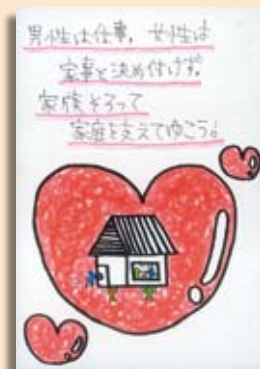 男性は仕事、女性は
家事と決め付けず。
家族そろって
家庭を支えてゆこう。